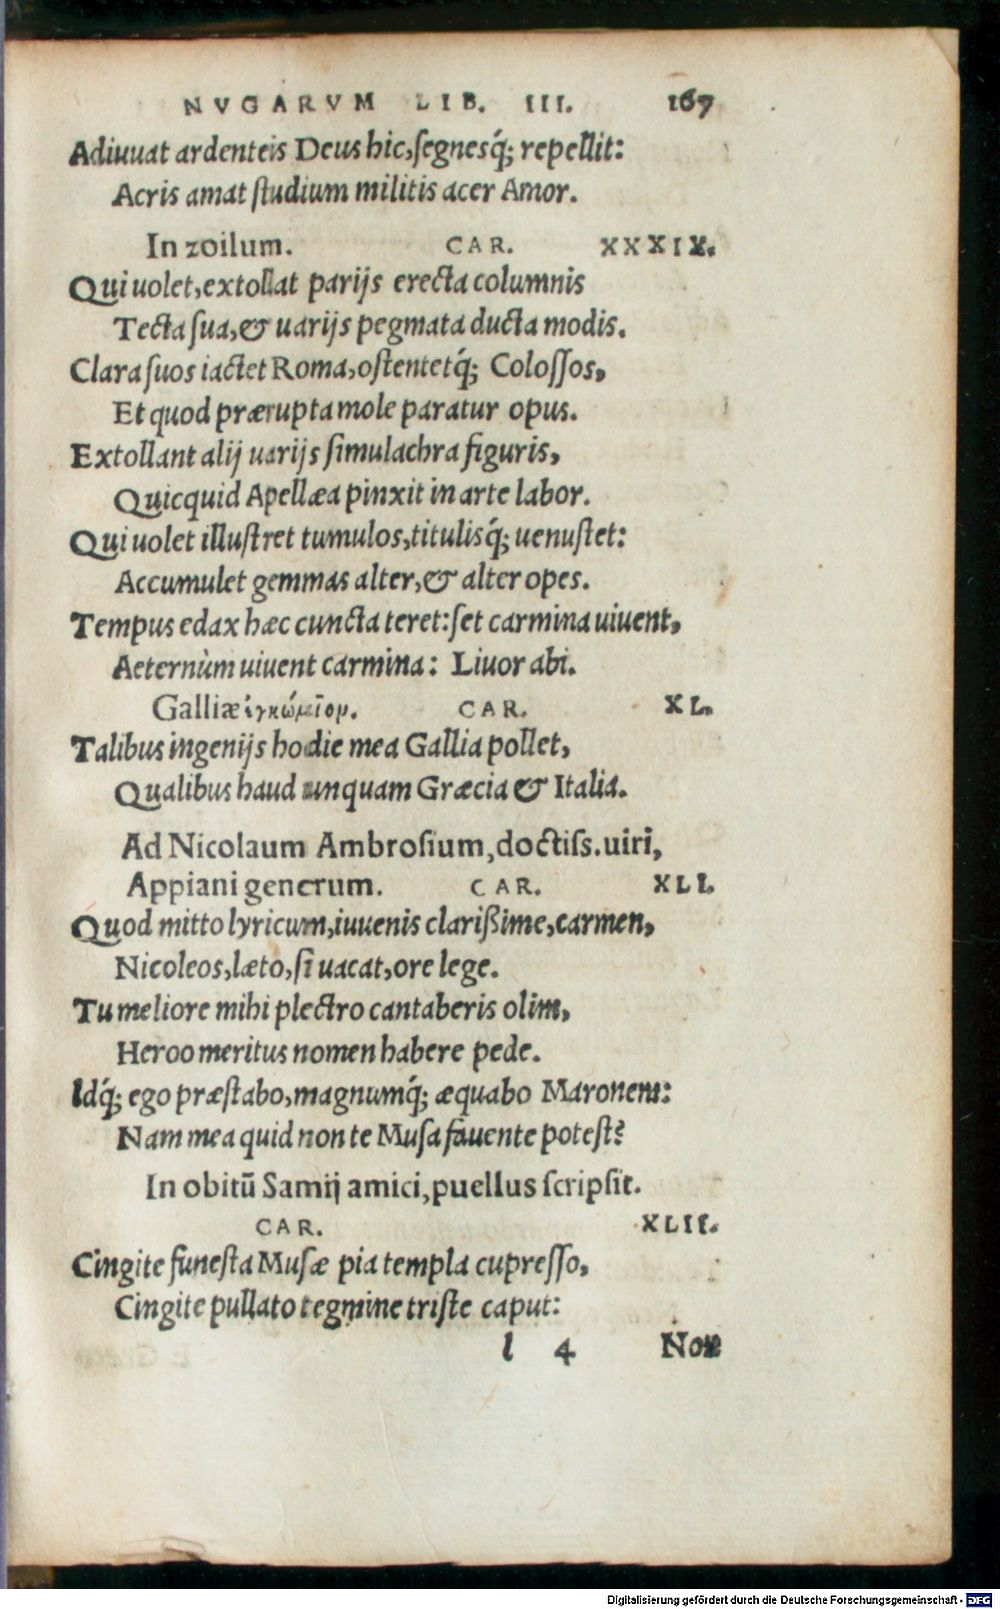 NVGARVM LIB. III. 167
Adiuuat ardenteis Deus hic, ſegnesq́; repellit:
Acris amat ſtudium militis acer Amor.
In zoilum. CAR. XXXIX.
Qui uolet, extollat parijs erecta columnis
Tecta ſua, & uarijs pegmata ducta modis.
Clara ſuos iactet Roma, oſtentetq́; Coloſſos,
Et quod prærupta mole paratur opus.
Extollant alij uarijs ſimulachra figuris,
Quicquid Apellæa pinxit in arte labor.
Qui uolet illuſtret tumulos, titulisq́; uenuſtet:
Accumulet gemmas alter, & alter opes.
Tempus edax hæc cuncta teret: ſet carmina uiuent,
Aeternùm uiuent carmina: Liuor abi.
Galliæ ἐγκώμιον. CAR. XL.
Talibus ingenijs hodie mea Gallia pollet,
Qualibus haud unquam Græcia & Italia.
Ad Nicolaum Ambroſium, doctiſs. uiri,
Appiani generum. CAR. XLI.
Quod mitto lyricum, iuuenis clarißime, carmen,
Nicoleos, læto, ſi uacat, ore lege.
Tu meliore mihi plectro cantaberis olim,
Heroo meritus nomen habere pede.
Idq́; ego præſtabo, magnumq́; æquabo Maronem:
Nam mea quid non te Muſa fauente poteſt?
In obitū Samij amici, puellus ſcripſit.
CAR. XLII.
Cingite funeſta Muſæ pia templa cupreſſo,
Cingite pullato tegmine triſte caput:
l 4 Non
Digitalisierung gefördert durch die Deutsche Forschungsgemeinschaft - DFG